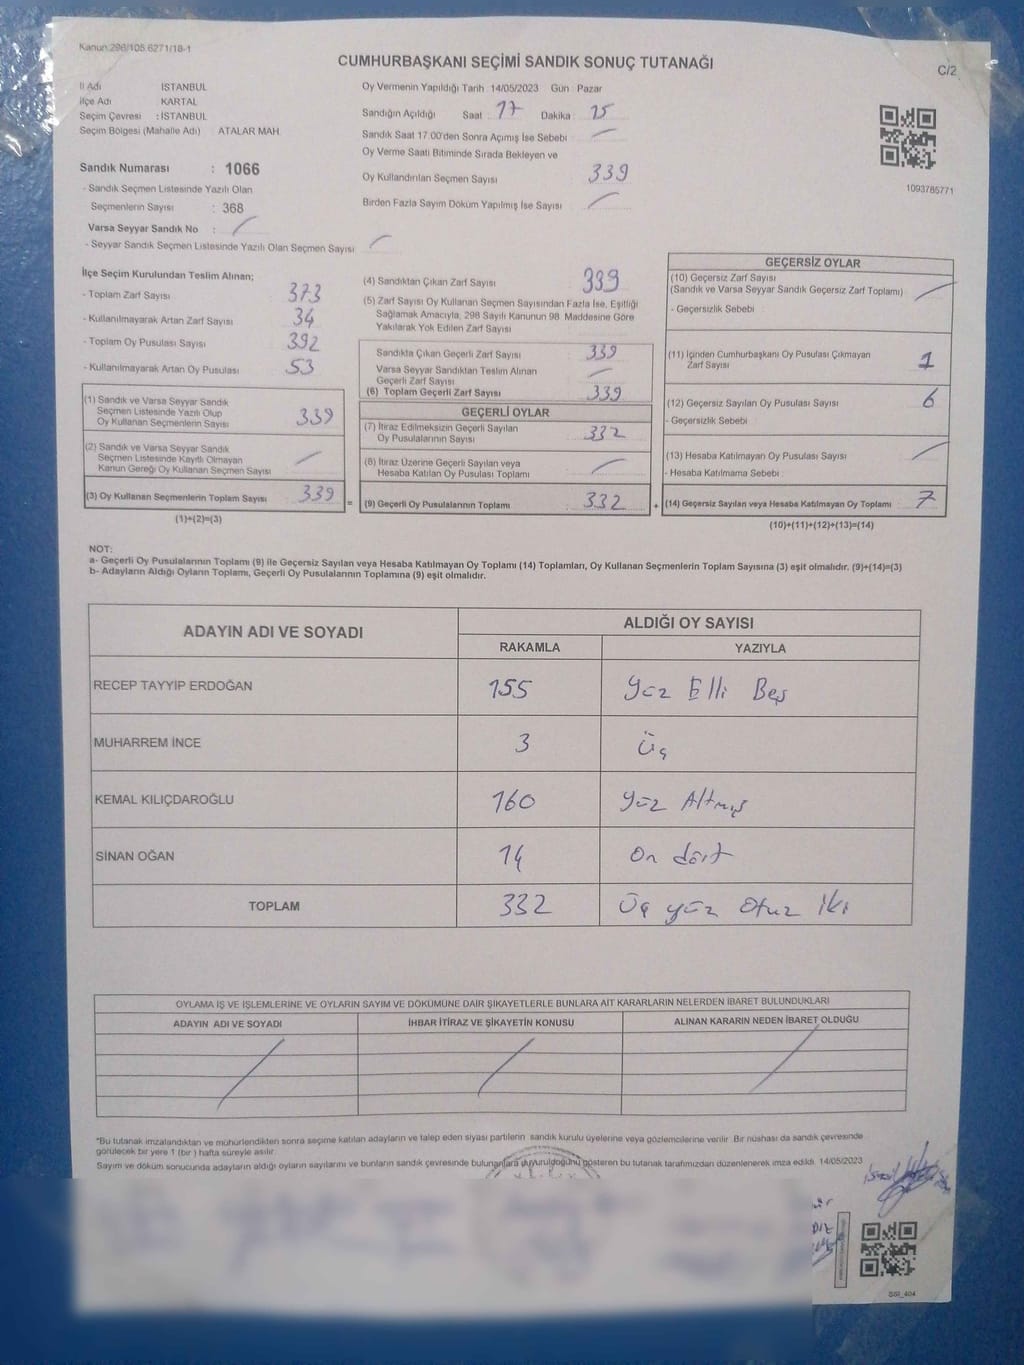 Kanun:298/105 6271/18-1
CUMHURBAŞKANI SEÇİMİ SANDIK SONUÇ TUTANAĞI
C/2
İl Adı İSTANBUL
İlçe Adı KARTAL
Seçim Çevresi : İSTANBUL
Seçim Bölgesi (Mahalle Adı) ATALAR MAH
Sandık Numarası : 1066
- Sandık Seçmen Listesinde Yazılı Olan
Seçmenlerin Sayısı : 368
Varsa Seyyar Sandık No :
- Seyyar Sandık Seçmen Listesinde Yazılı Olan Seçmen Sayısı
Oy Vermenin Yapıldığı Tarih 14/05/2023 Gün Pazar
Sandığın Açıldığı Saat 17 Dakika 15
Sandık Saat 17.00'den Sonra Açımış İse Sebebi
Oy Verme Saati Bitiminde Sırada Bekleyen ve
Oy Kullandırılan Seçmen Sayısı 339
Birden Fazla Sayım Döküm Yapılmış İse Sayısı
1093785771
İlçe Seçim Kurulundan Teslim Alınan;
- Toplam Zarf Sayısı 373
- Kullanılmayarak Artan Zarf Sayısı 34
- Toplam Oy Pusulası Sayısı 392
- Kullanılmayarak Artan Oy Pusulası 53
(1) Sandık ve Varsa Seyyar Sandık
Seçmen Listesinde Yazılı Olup
Oy Kullanan Seçmenlerin Sayısı 339
(2) Sandık ve Varsa Seyyar Sandık
Seçmen Listesinde Kayıtlı Olmayan
Kanun Gereği Oy Kullanan Seçmen Sayısı
(3) Oy Kullanan Seçmenlerin Toplam Sayısı 339 =
(1)+(2)=(3)
(4) Sandıktan Çıkan Zarf Sayısı 339
(5) Zarf Sayısı Oy Kullanan Seçmen Sayısından Fazla İse, Eşitliği
Sağlamak Amacıyla, 298 Sayılı Kanunun 98. Maddesine Göre
Yakılarak Yok Edilen Zarf Sayısı
Sandıkta Çıkan Geçerli Zarf Sayısı 339
Varsa Seyyar Sandıktan Teslim Alınan
Geçerli Zarf Sayısı
(6) Toplam Geçerli Zarf Sayısı 339
GEÇERLİ OYLAR
(7) İtiraz Edilmeksizin Geçerli Sayılan
Oy Pusulalarının Sayısı 332
(8) İtiraz Üzerine Geçerli Sayılan veya
Hesaba Katılan Oy Pusulası Toplamı
(9) Geçerli Oy Pusulalarının Toplamı 332 +
GEÇERSİZ OYLAR
(10) Geçersiz Zarf Sayısı
(Sandık ve Varsa Seyyar Sandık Geçersiz Zarf Toplamı)
- Geçersizlik Sebebi
(11) İçinden Cumhurbaşkanı Oy Pusulası Çıkmayan
Zarf Sayısı 1
(12) Geçersiz Sayılan Oy Pusulası Sayısı 6
- Geçersizlik Sebebi
(13) Hesaba Katılmayan Oy Pusulası Sayısı
- Hesaba Katılmama Sebebi
(14) Geçersiz Sayılan veya Hesaba Katılmayan Oy Toplamı 7
(10)+(11)+(12)+(13)=(14)
NOT:
a- Geçerli Oy Pusulalarının Toplamı (9) ile Geçersiz Sayılan veya Hesaba Katılmayan Oy Toplamı (14) Toplamları, Oy Kullanan Seçmenlerin Toplam Sayısına (3) eşit olmalıdır. (9)+(14)=(3)
b- Adayların Aldığı Oyların Toplamı, Geçerli Oy Pusulalarının Toplamına (9) eşit olmalıdır.
ADAYIN ADI VE SOYADI ALDIĞI OY SAYISI
RAKAMLA YAZIYLA
RECEP TAYYİP ERDOĞAN 155 Yüz Elli Beş
MUHARREM İNCE 3 Üç
KEMAL KILIÇDAROĞLU 160 Yüz Altmış
SİNAN OĞAN 14 On dört
TOPLAM 332 Üç yüz Otuz İki
OYLAMA İŞ VE İŞLEMLERİNE VE OYLARIN SAYIM VE DÖKÜMÜNE DAİR ŞİKAYETLERLE BUNLARA AİT KARARLARIN NELERDEN İBARET BULUNDUKLARI
ADAYIN ADI VE SOYADI İHBAR İTİRAZ VE ŞİKAYETİN KONUSU ALINAN KARARIN NEDEN İBARET OLDUĞU
"Bu tutanak imzalandıktan ve mühürlendikten sonra seçime katılan adayların ve talep eden siyasi partilerin sandık kurulu üyelerine veya gözlemcilerine verilir. Bir nüshası da sandık çevresinde
görülecek bir yere 1 (bir) hafta süreyle asılır.
Sayım ve döküm sonucunda adayların aldığı oyların sayılarını ve bunların sandık çevresinde bulunanlara duyurulduğunu gösteren bu tutanak tarafımızdan düzenlenerek imza edildi. 14/05/2023
SSI_404